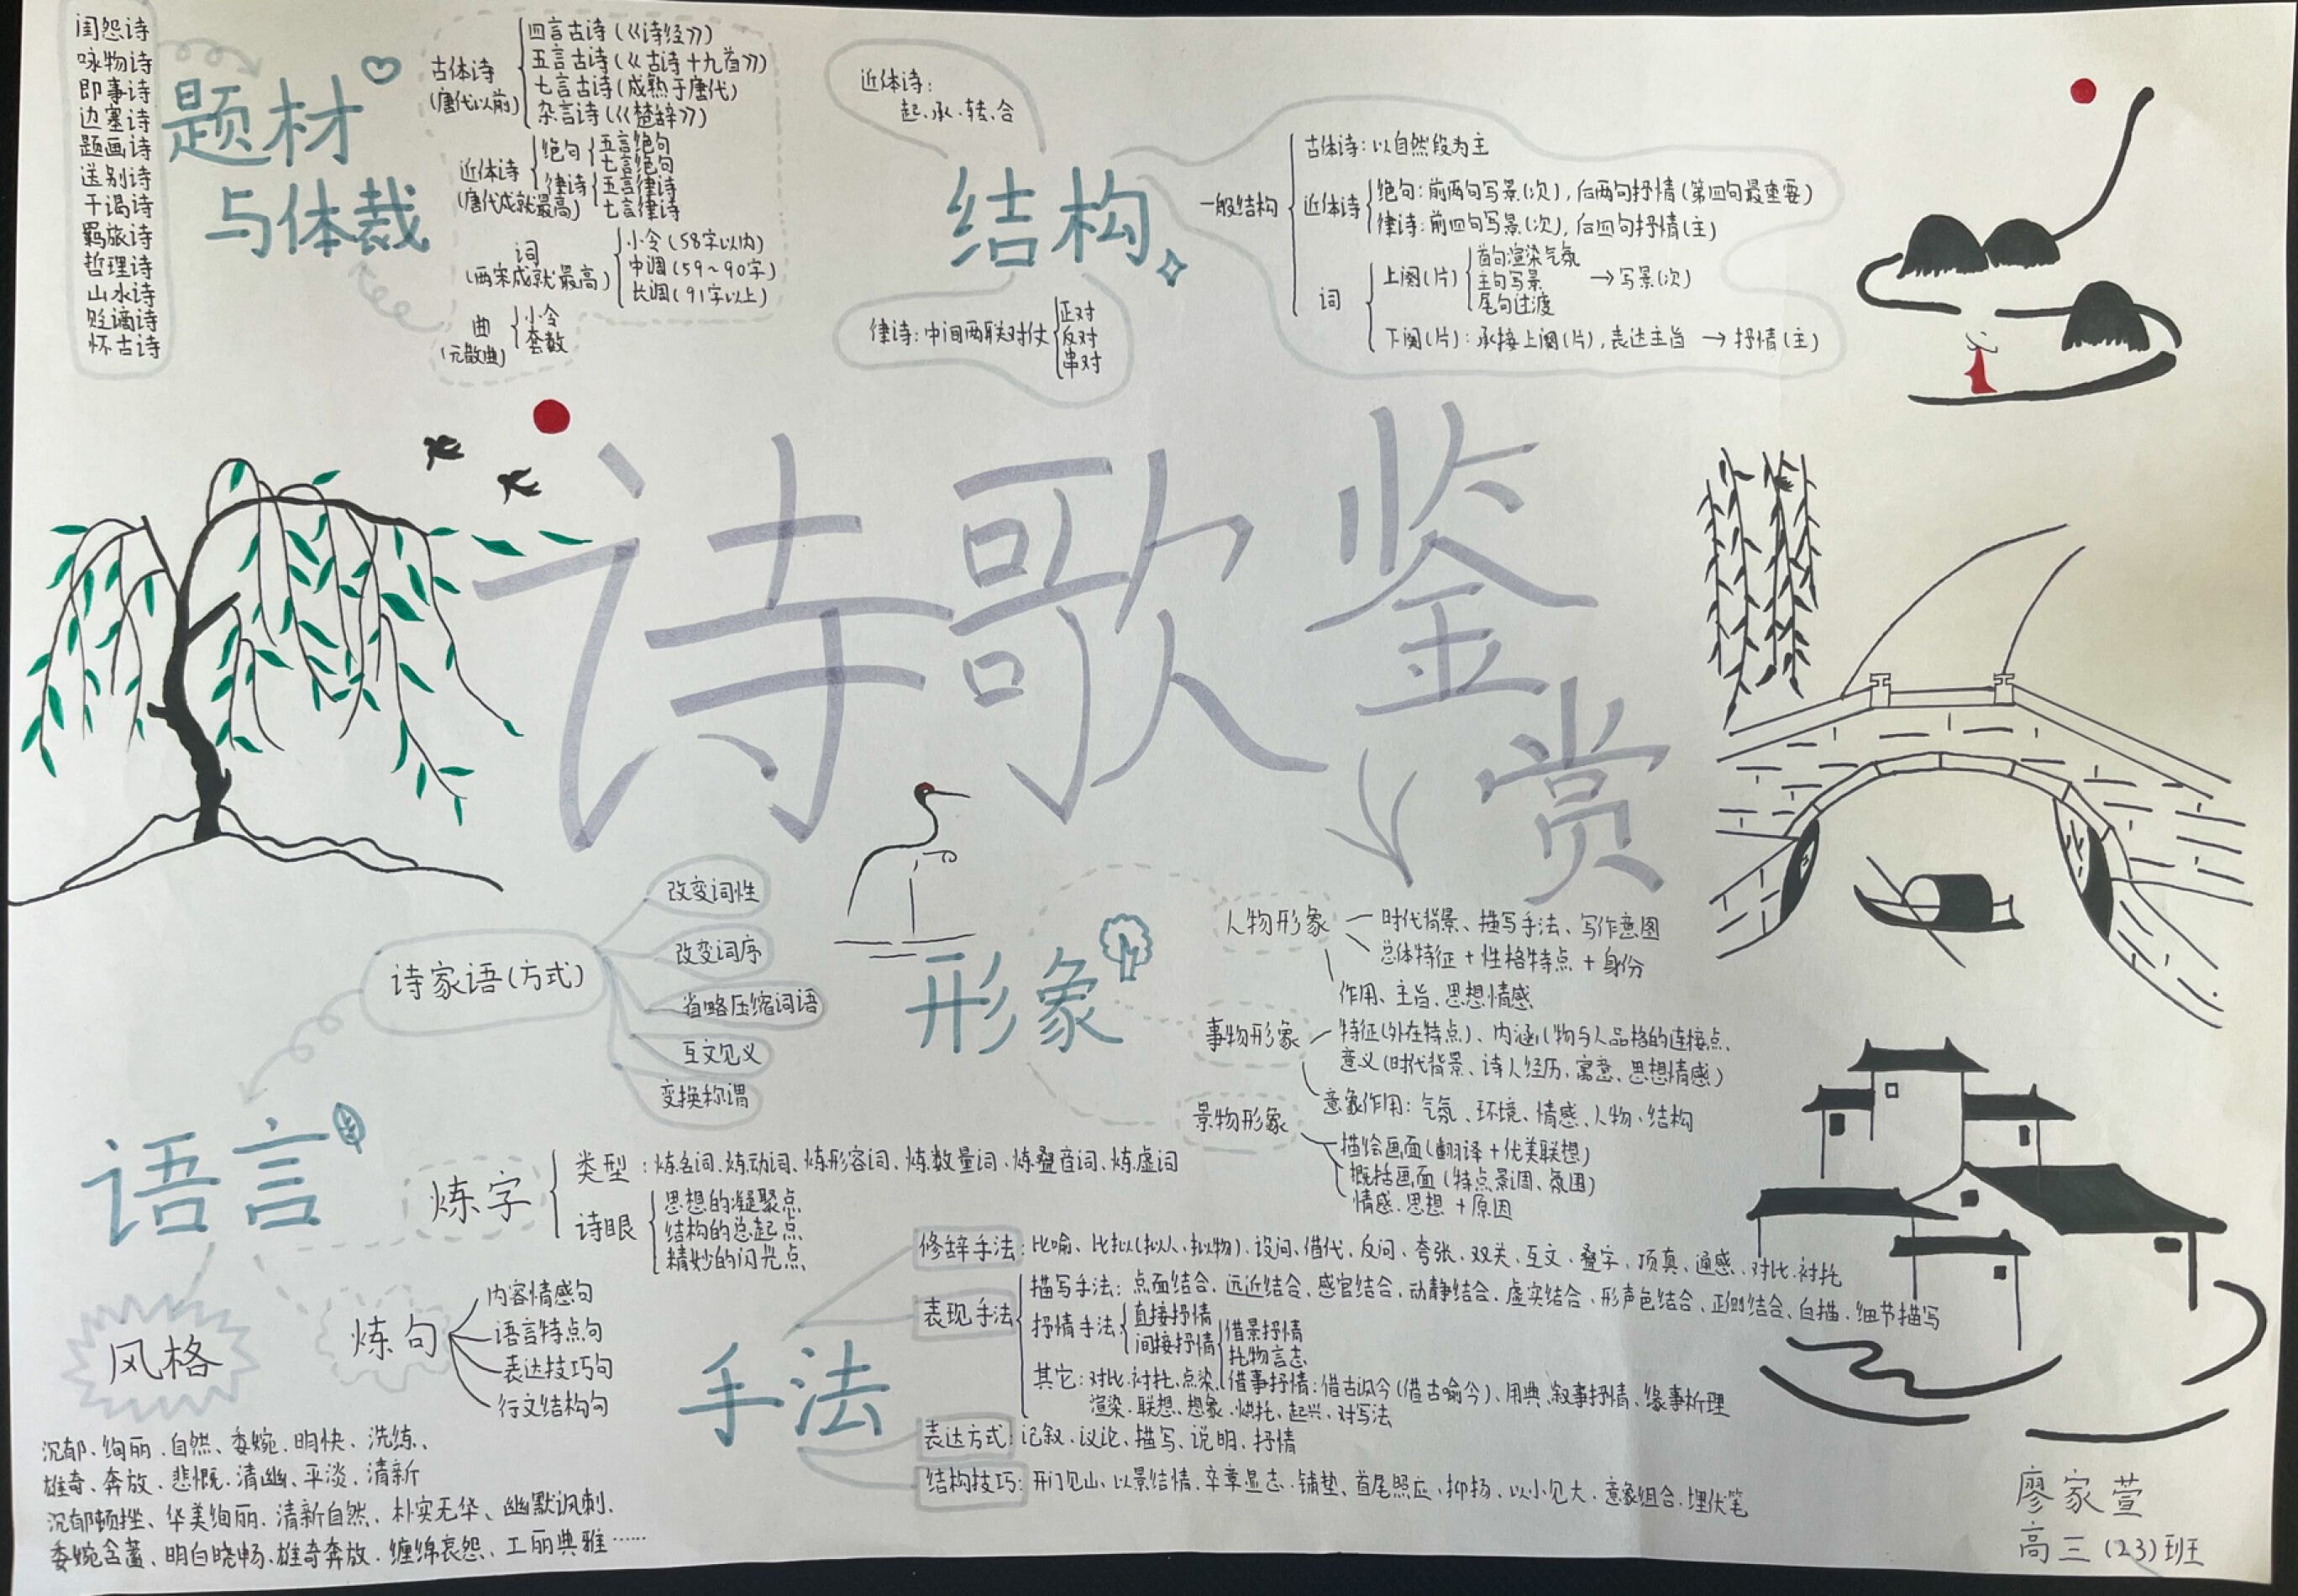 闺怨诗
咏物诗
即事诗
边塞诗
题画诗
送别诗
干谒诗
羁旅诗
哲理诗
山水诗
贬谪诗
怀古诗
题材
与体裁
古体诗
(唐代以前)
四言古诗(《诗经》)
五言古诗(《古诗十九首》)
七言古诗(成熟于唐代)
杂言诗(《楚辞》)
近体诗
(唐代成就最高)
绝句
五言绝句
七言绝句
律诗
五言律诗
七言律诗
词
(两宋成就最高)
小令(58字以内)
中调(59~90字)
长调(91字以上)
曲
(元散曲)
小令
套数
近体诗:
起、承、转、合
结构
律诗:中间两联对仗
正对
反对
串对
一般结构
古体诗:以自然段为主
近体诗
绝句:前两句写景(次),后两句抒情(第四句最重要)
律诗:前四句写景(次),后四句抒情(主)
词
上阕(片)
首句渲染气氛
主句写景
尾句过渡
→写景(次)
下阕(片):承接上阕(片),表达主旨→抒情(主)
诗歌鉴
赏
诗家语(方式)
改变词性
改变词序
省略压缩词语
互文见义
变换称谓
形象
人物形象
时代背景、描写手法、写作意图
总体特征+性格特点+身份
作用、主旨、思想情感
事物形象
特征(外在特点)、内涵(物与人品格的连接点、
意义(时代背景、诗人经历、寓意、思想情感)
景物形象
意象作用:气氛、环境、情感、人物、结构
描绘画面(翻译+优美联想)
概括画面(特点景调、氛围)
情感、思想+原因
语言
炼字
类型:炼名词、炼动词、炼形容词、炼数量词、炼叠音词、炼虚词
诗眼
思想的凝聚点
结构的总起点
精妙的闪光点
炼句
内容情感句
语言特点句
表达技巧句
行文结构句
风格
沉郁、绚丽、自然、委婉、明快、洗练、
雄奇、奔放、悲慨、清幽、平淡、清新
沉郁顿挫、华美绚丽、清新自然、朴实无华、幽默讽刺、
委婉含蓄、明白晓畅、雄奇奔放、缠绵哀怨、工丽典雅……
手法
修辞手法:比喻、比拟(拟人、拟物)、设问、借代、反问、夸张、双关、互文、叠字、顶真、通感、对比、衬托
表现手法
描写手法:点面结合、远近结合、感官结合、动静结合、虚实结合、形声色结合、正侧结合、白描、细节描写
抒情手法
直接抒情
间接抒情
借景抒情
托物言志
借事抒情:借古讽今(借古喻今)、用典、叙事抒情、缘事析理
其它:对比、衬托、点染、
渲染、联想、想象、烘托、起兴、对写法
表达方式:记叙、议论、描写、说明、抒情
结构技巧:开门见山、以景结情、卒章显志、铺垫、首尾照应、抑扬、以小见大、意象组合、埋伏笔
廖家萱
高三(23)班